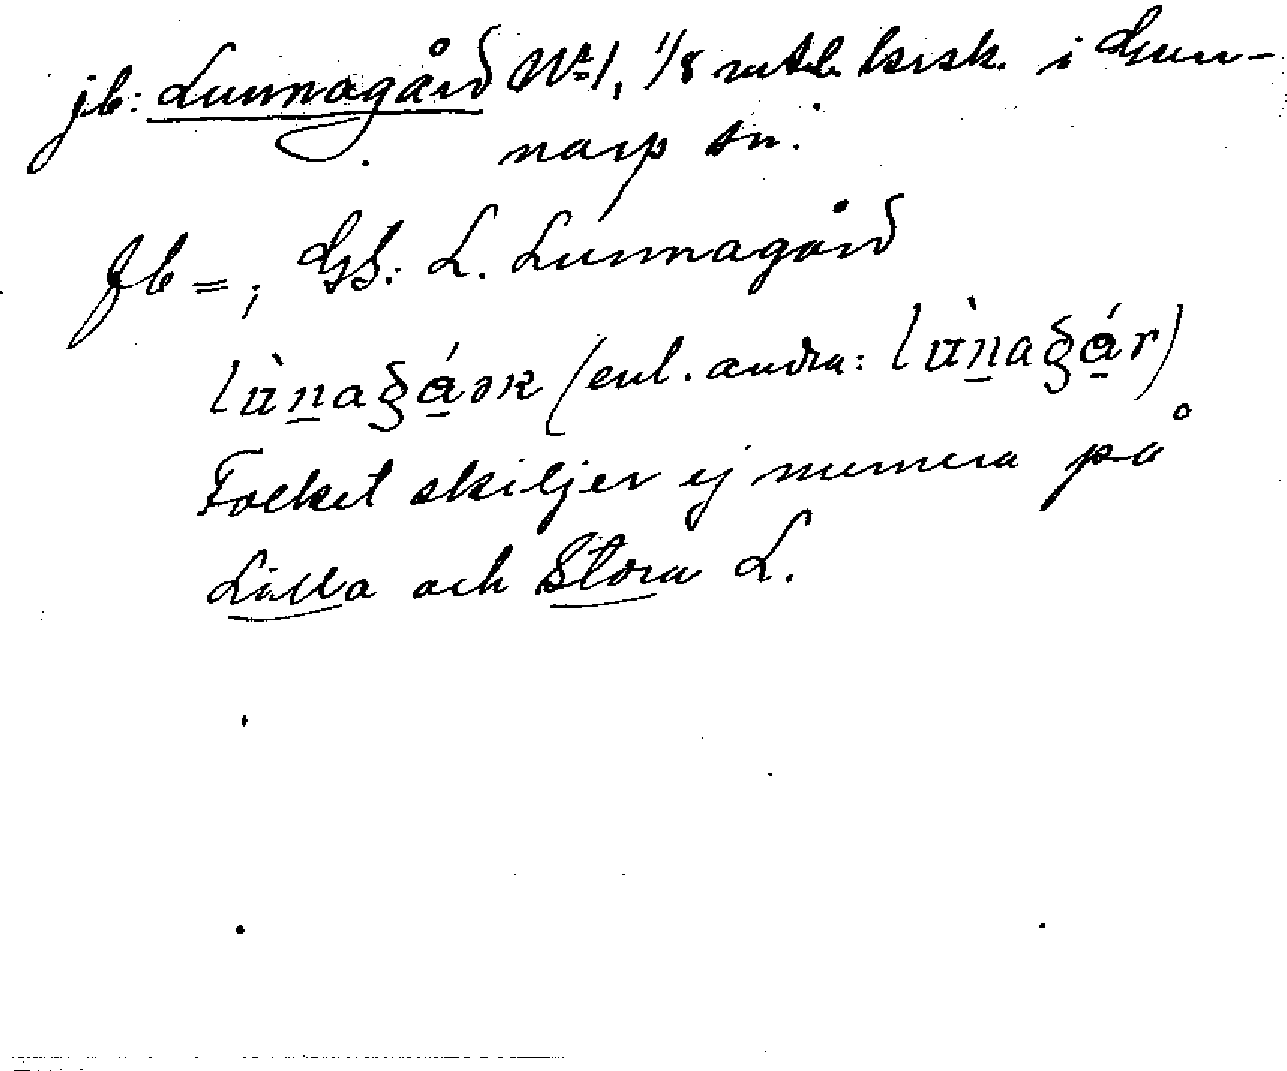 jb: Lunnagård No 1, 1/8 mtl. krsk. i Gun-
narp sn.
Jb =; GS: L. Lunnagård
(enl. andra:
Folket skiljer ej numera på
Lilla och Stora L.